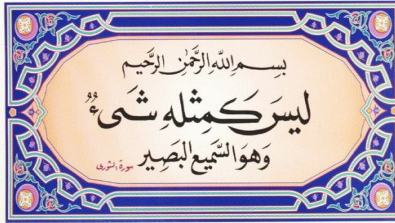 بسم الله الرحمن الرحيم
ليس كمثله شىءٌ
وهو السميع البصير
سورة الشورى